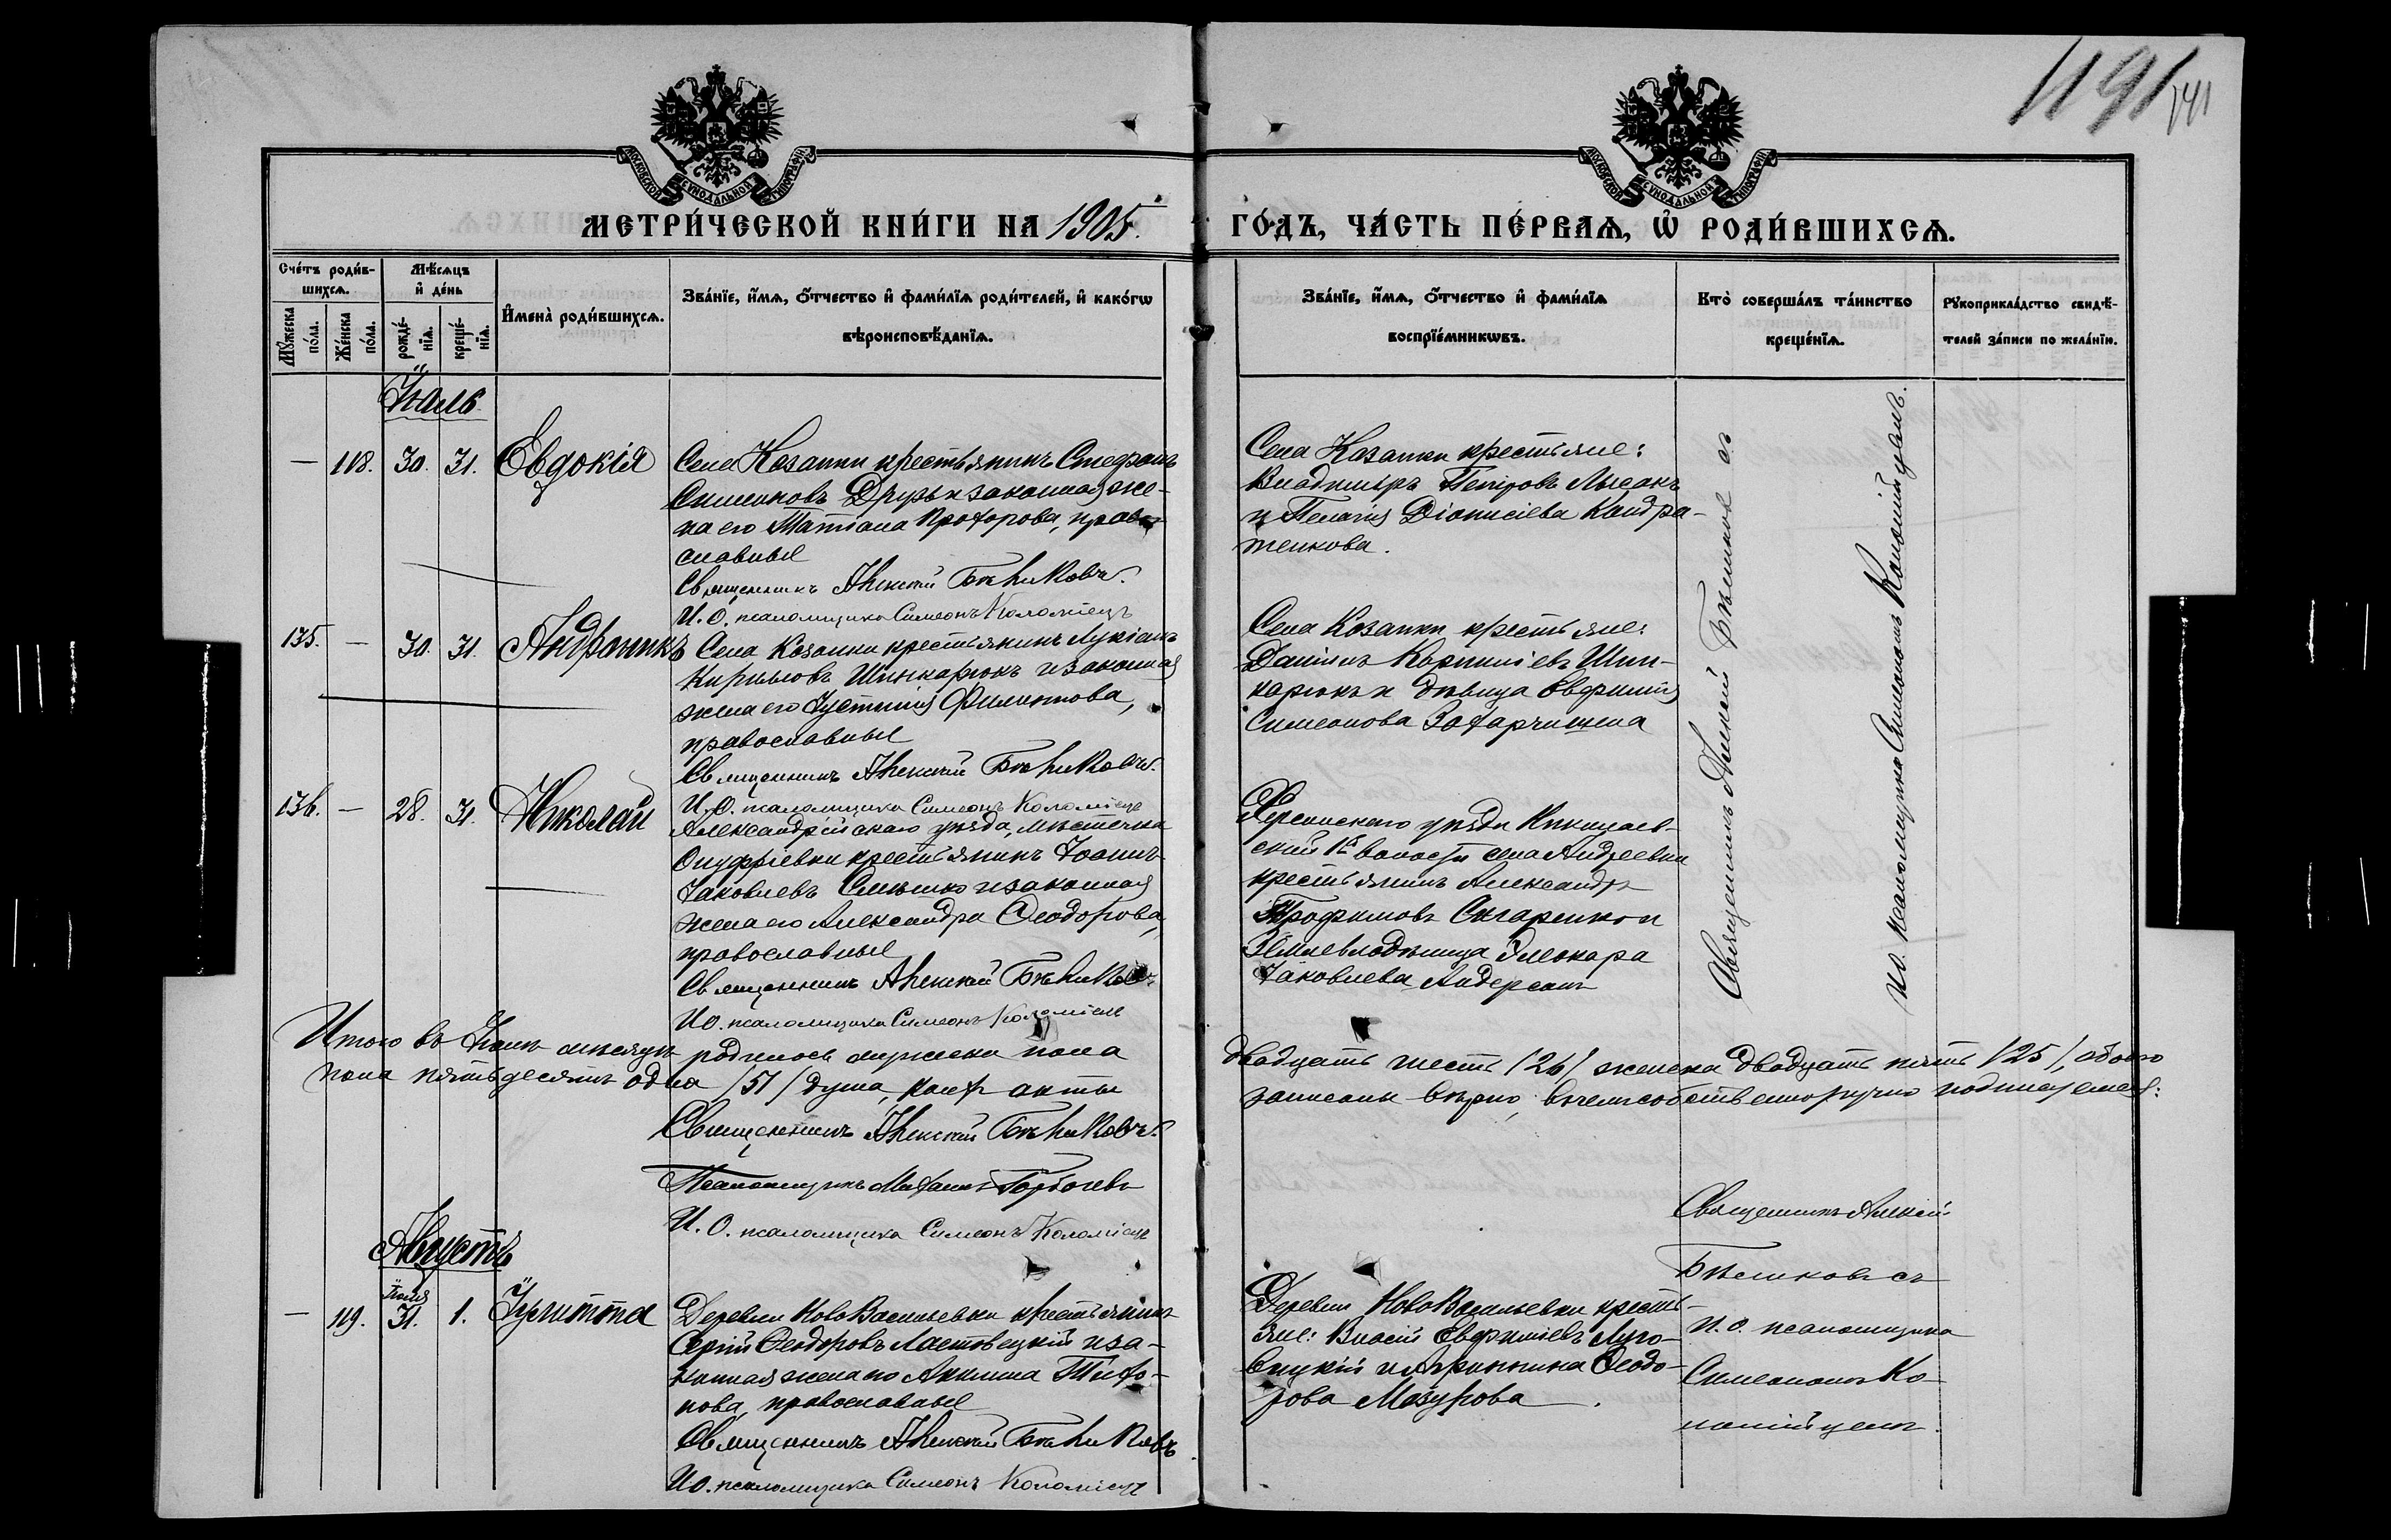 1191
141
МОСКОВСКОЙ СѴНОДАЛЬНОЙ ТИПОГРАФІИ
МОСКОВСКОЙ СѴНОДАЛЬНОЙ ТИПОГРАФІИ
МЕТРИ́ЧЕСКОЙ КНИ́ГИ НА 1905.
ГО́ДЪ, ЧА́СТЬ ПЕ́РВАѦ, Ѡ҆ РОДИ́ВШИХСѦ.
Сче́тъ роди́в-
шихсѧ.
Мꙋ́жеска по́ла.
Же́нска по́ла.
Мѣ́сѧцъ
и҆ де́нь
рожде́-
нїѧ.
креще́-
нїѧ.
И҆мена̀ роди́вшихсѧ.
Зва́нїе, и҆́мѧ, ѻ҆́тчество и҆ фами́лїѧ роди́телей, и҆ како́гѡ
вѣроисповѣ́данїѧ.
Зва́нїе, и҆́мѧ, ѻ҆́тчество и҆ фами́лїѧ
воспрїе́мникѡвъ.
Кто̀ соверша́лъ та́инство
креще́нїѧ.
Рꙋкоприкла́дство свидѣ́-
телей за́писи по жела́нїю.
Іюль
— 118. 30. 31. Евдокія
Села Козанки крестьянинъ Стефанъ
Симеоновъ Друзь и законная же-
на его Татіана Прохорова, право-
славные
Священникъ Алексій Бѣликовъ.
И. О. псаломщика Симеонъ Коломіецъ
Села Козанки крестьяне:
Владиміръ Петровъ Лысакъ
и Пелагія Діонисіева Кондра-
тенкова.
135. — 30. 31. Андроникъ
Села Козанки крестьянинъ Лукіанъ
Кирилловъ Шинкарюкъ и законная
жена его Іустинія Филиппова,
православные
Священникъ Алексій Бѣликовъ.
И. О. псаломщика Симеонъ Коломіецъ
Села Козанки крестьяне:
Даніилъ Корниліевъ Шин-
карюкъ и дѣвица Евфимія
Симеонова Захарчишена
136. — 28. 31. Николай
Александрійскаго уѣзда, мѣстечка
Онуфріевки крестьянинъ Іоаннъ
Іаковлевъ и законная
жена его Александра Ѳеодорова,
православные
Священникъ Алексій Бѣликовъ.
И. О. псаломщика Симеонъ Коломіецъ
Херсонскаго уѣзда Николаев-
ской 1й волости села Андреевки
крестьянинъ Александръ
Трофимовъ и
Землевладѣлица Элеонора
Іаковлева Андерсонъ
Священникъ Алексій Бѣликовъ съ
И. О. псаломщика Симеономъ Коломійцемъ.
Итого въ Іюлѣ мѣсяцѣ родилось мужеска пола двадцать шесть /26/ женска двадцать пять /25/, обоего
пола пятьдесятъ одна /51/ душа, акты записаны вѣрно, въ чемъ собственноручно подписуемся:
Священникъ Алексій Бѣликовъ.
Псаломщикъ Михаилъ
И. О. псаломщика Симеонъ Коломіецъ
Августъ
Іюля
— 119. 31. 1. Іулитта
Деревни НовоВасильевки крестьянинъ
Сергій Ѳеодоровъ Ластовецкій и за-
конная жена его Акилина Тихо-
нова, православные
Священникъ Алексій Бѣликовъ
И. О. псаломщика Симеонъ Коломіецъ
Деревни НовоВасильевки кресть-
яне: Власій Евфиміевъ Луго-
вицкій и Агриппина Ѳеодо-
рова Мазурова.
Священникъ Алексій
Бѣликовъ съ
И. О. псаломщика
Симеономъ Ко-
ломійцемъ.